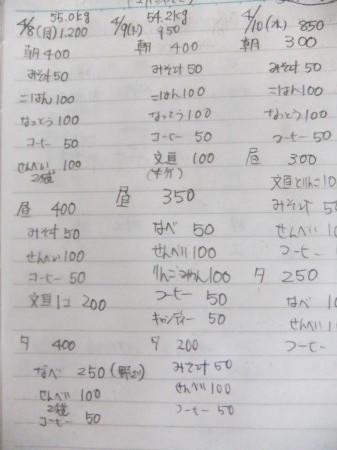 4/8(月) 55.0kg 1,200
朝 400
みそ汁 50
ごはん 100
なっとう 100
コーヒー 50
せんべい 100
2袋
昼 400
みそ汁 50
せんべい 100
コーヒー 50
文旦1コ 200
夕 400
なべ 250
せんべ 100
2袋
コーヒー 50
4/9(火) 54.2kg 950
朝 400
みそ汁 50
ごはん 100
なっとう 100
コーヒー 50
文旦 100
(半分)
昼 350
なべ 50
せんべい 100
りんごみかん 100
コーヒー 50
キャンディー 50
夕 200
みそ汁 50
せんべい 100
コーヒー 50
4/10(水) 850
朝 300
みそ汁 50
ごはん 100
なっとう 100
コーヒー 50
昼 300
文旦とりんご 10
みそ汁 50
せんべい 1
コーヒー
夕 250
なべ 1
せんべい 1
コーヒー